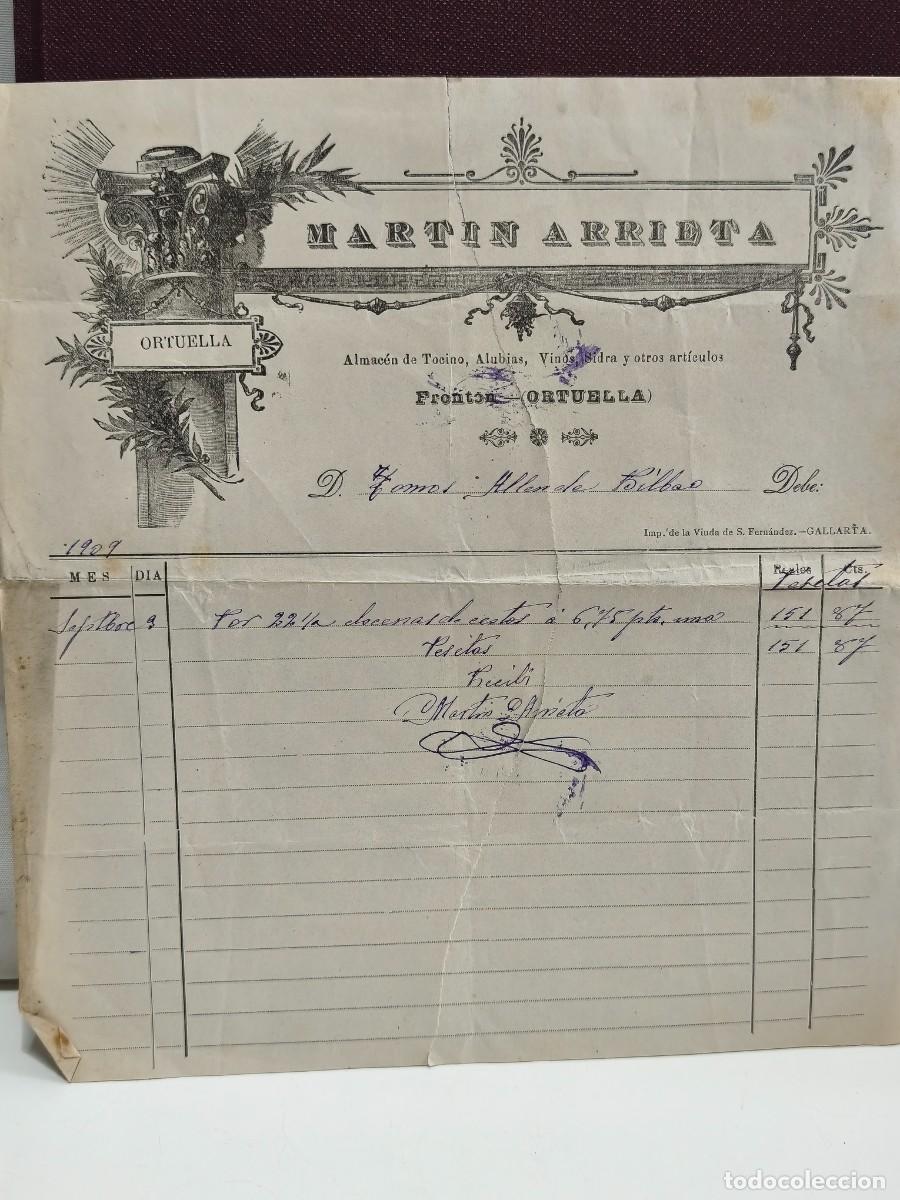 MARTIN ARRIETA
ORTUELLA
Almacén de Tocino, Alubias, Vinos, Sidra y otros artículos
Fronton—(ORTUELLA)
D. Tomas Allende Bilbao Debe:
Imp.ᵗ de la Viuda de S. Fernández.—GALLARTA.
1909
MES DIA Reales Cts.
Pesetas
Septbre 3 Por 22½ docenas de cestos á 6,75 pts. una 151 87
Pesetas 151 87
Recibí
Martin Arrieta
todocoleccion